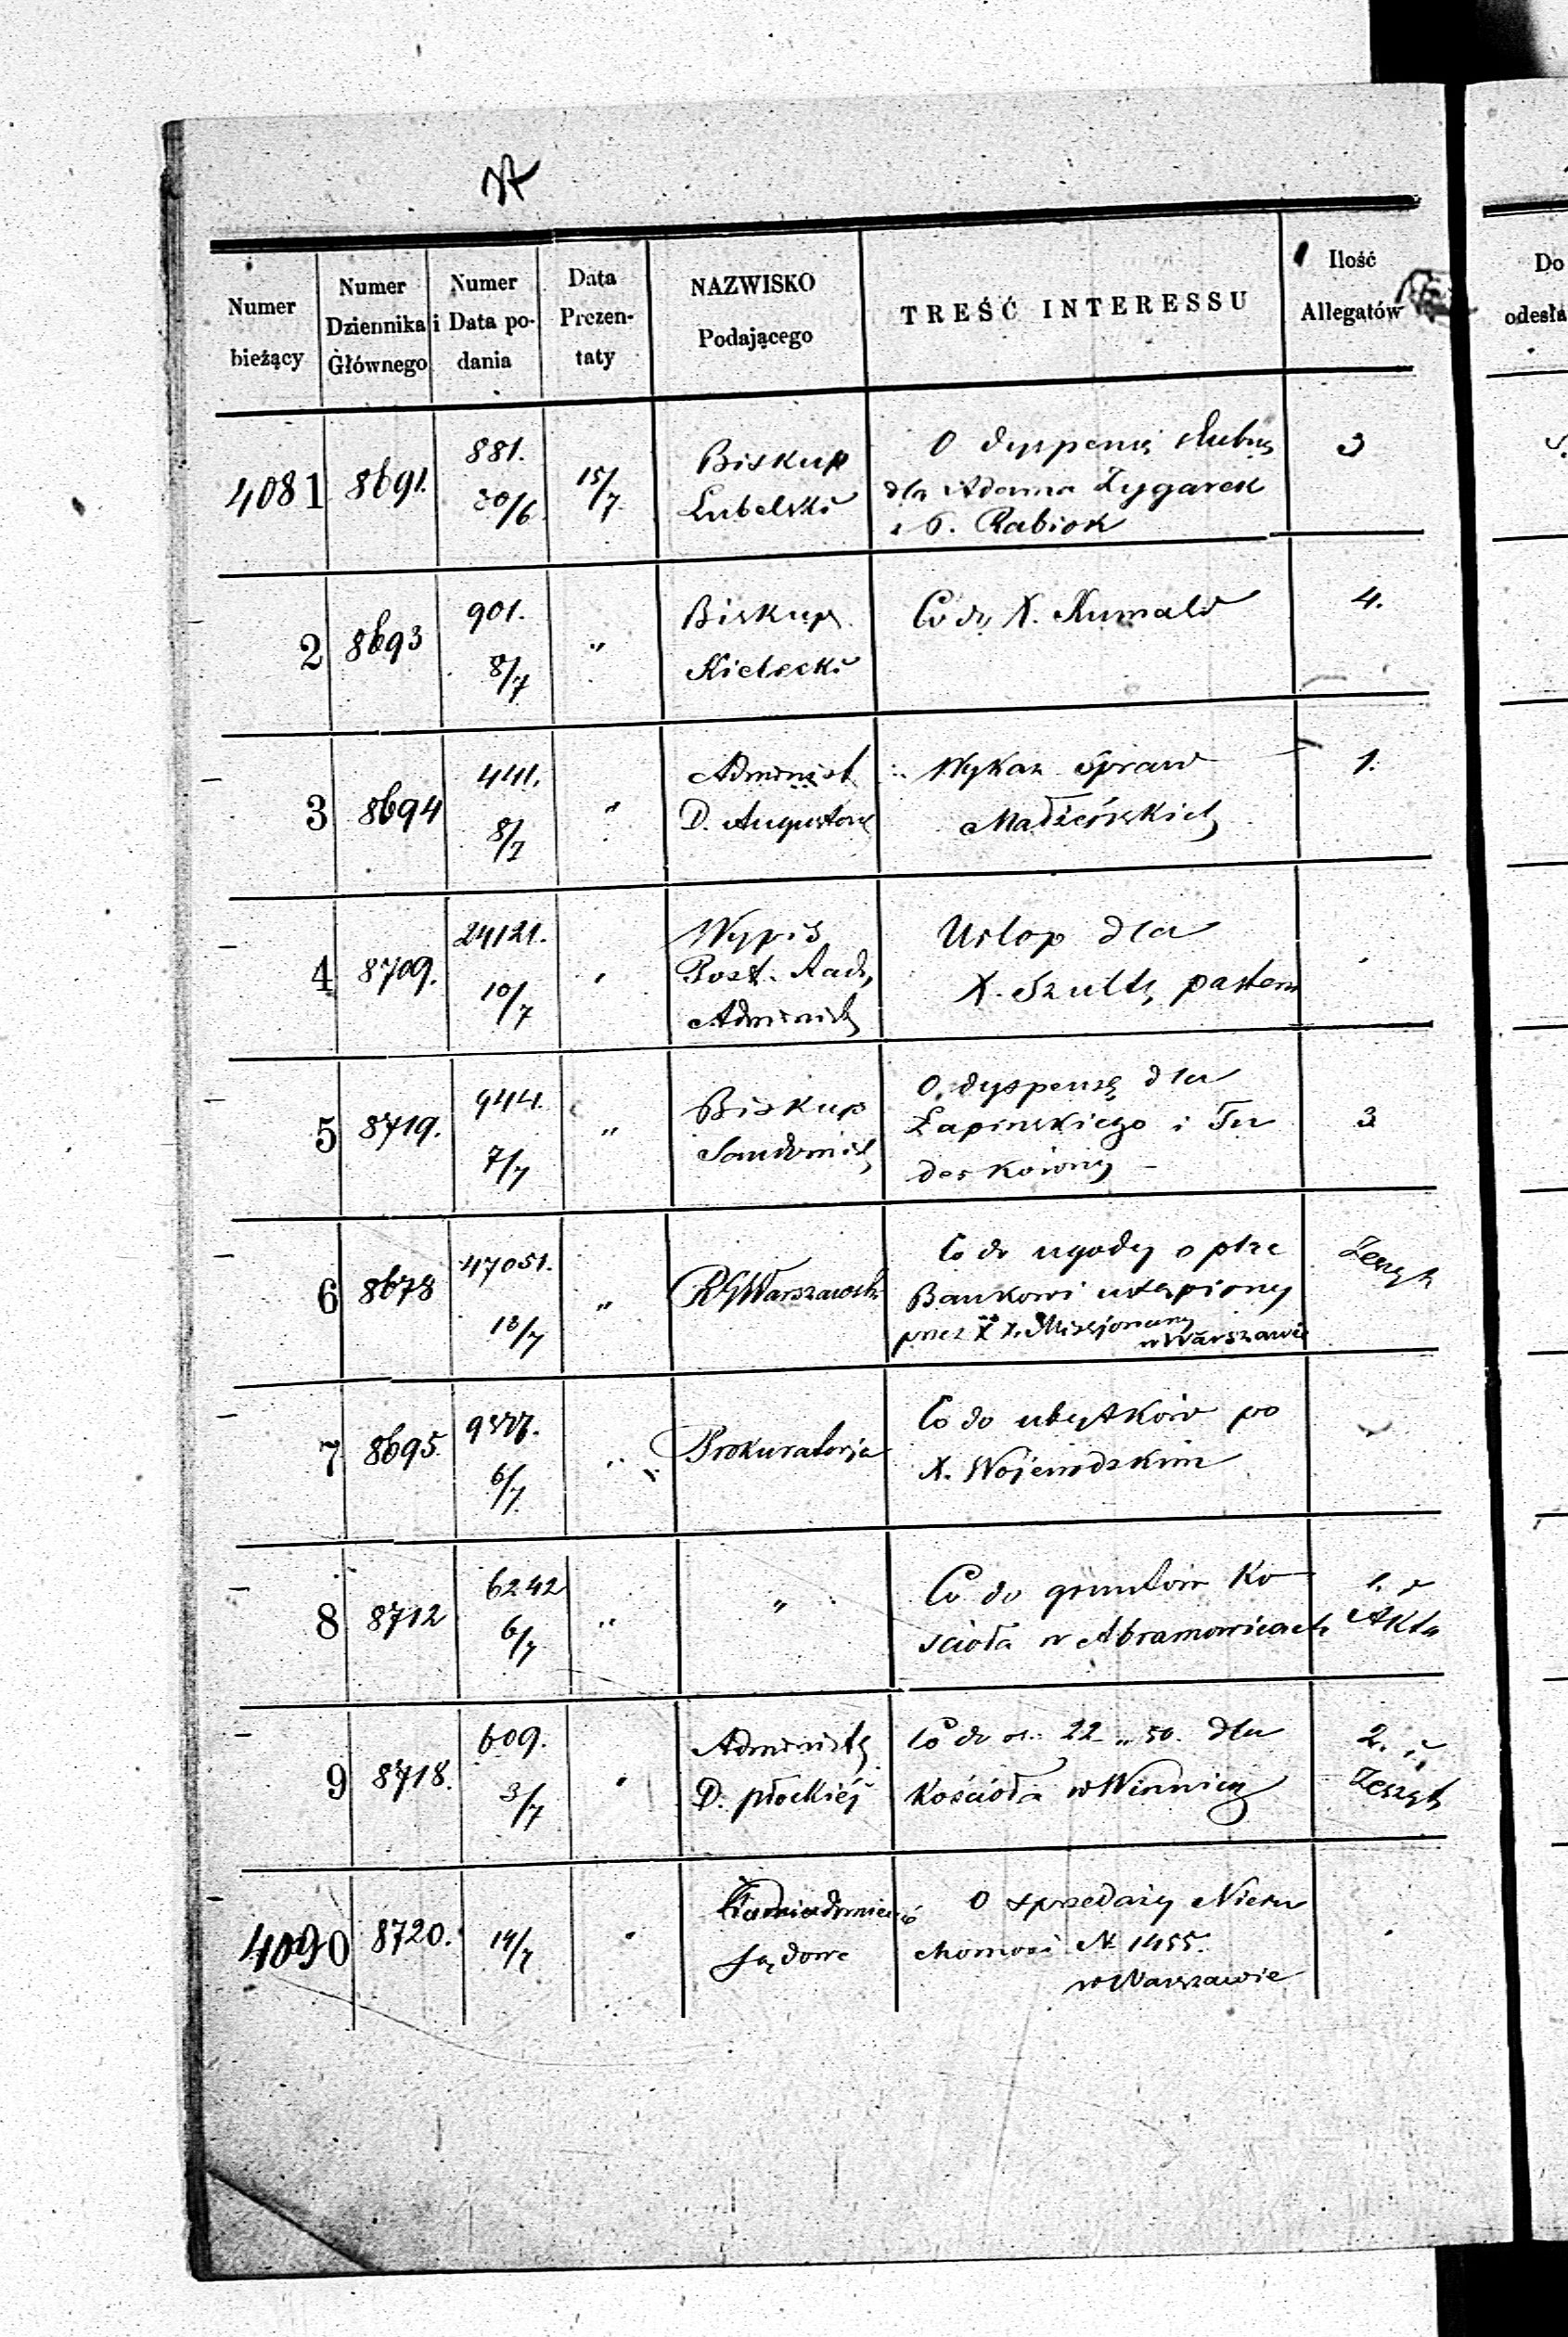 Numer bieżący | Numer Dziennika Głównego | Numer i Data podania | Data Prezentaty | NAZWISKO Podającego | TREŚĆ INTERESSU | Ilość Allegatów
4081 8691. 881. 15/7
Biskup
Lubelski
O dyspensę ślubną
dla Adama Zygarek
Rabiok
3
2 8693 901. 8/7 "
Biskup
Kielecki
Co do X.
4.
3 8694 441. 8/7 "
Administ
D. Augustows
Wykaz Spraw
Małżeńskich
1.
4 8709. 24121. 10/7
Wypis
Post. Rady
Administ
Urlop dla
X. Szultz pastem
5 8719. 944. 7/7 "
Biskup
Sandomir
O dyspensę dla
Łapińskiego i
3
6 8678 47051. 13/7 "
RGWarszawsk
Co do ugody o
Bankowi ustąpiony
przez XX. Missjonarzy
w Warszawie
Zeszyt
7 8695. 6/7 "
Prokuratorja
Co do ubytków po
X. Wojewodzkim
8 8712 6242 6/7 "
"
Co do gruntów Ko
ścioła w Abramowicach
1. i
Akta
9 8718. 609. 3/7
Administr
D. płockiéj
Co do rs. 22 „ 50. dla
Kościoła w Winnicy
2. i
Zeszyt
4090 8720. 14/7
Zawiadomienie
Sądowe
O sprzedaży Nieru
chomości № 1455.
w Warszawie
Do
odesła